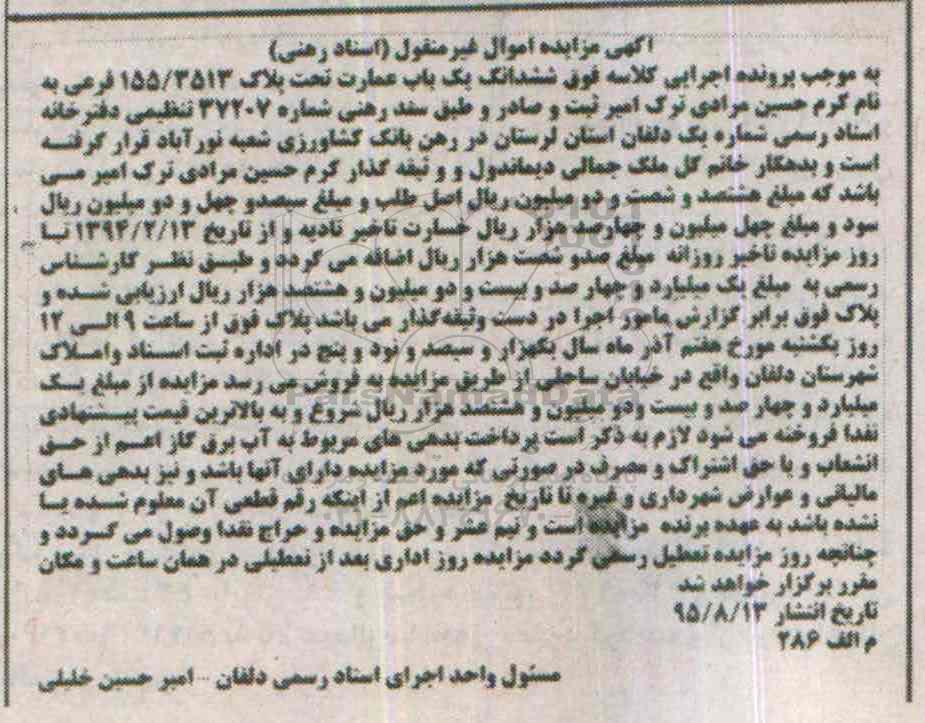 آگهی مزایده اموال غیرمنقول (اسناد رهنی)
به موجب پرونده اجرایی کلاسه فوق ششدانگ یک باب عمارت تحت پلاک ۱۵۵/۳۵۱۳ فرعی به
نام کرم حسین مرادی ترک امیر ثبت و صادر و طبق سند رهنی شماره ۳۷۲۰۷ تنظیمی دفترخانه
اسناد رسمی شماره یک دلفان استان لرستان در رهن بانک کشاورزی شعبه نورآباد قرار گرفتـه
است و بدهکار خانم گل ملک جمالی دیماندول و و ثیقه گذار کرم حسین مرادی ترک امیر مـی
باشد که مبلغ هشتصد و شصت و دو میلیون ریال اصل طلب و مبلغ سیصدو چهل و دو میلیون ریال
سود و مبلغ چهل میلیون و چهارصد هزار ریال خسارت تاخیر تادیه و از تاریخ ۱۳۹۴/۲/۱۳ تـا
روز مزایده تاخیر روزانه مبلغ صدو شصت هزار ریال اضافه می گردد و طبـق نظـر کارشـناس
رسمی به مبلغ یک میلیارد و چهار صد و بیست و دو میلیون و هشتصد هزار ریال ارزیابی شـده و
پلاک فوق برابر گزارش مامور اجرا در دست وثیقه گذار می باشد پلاک فوق از ساعت ۹ الـی ۱۲
روز یکشنبه مورخ هفتم آذر ماه سال یکهزار و سیصد و نود و پنج در اداره ثبت اسـناد واملاک
شهرستان دلفان واقع در خیابان ساحلی از طریق مزایده به فروش می رسد مزایده از مبلغ یـک
میلیارد و چهار صد و بیست ودو میلیون و هشتصد هزار ریال شروع و به بالاترین قیمت پیشنهادی
نقدا فروخته می شود لازم به ذکر است پرداخت بدهی های مربوط به آب برق گاز اعـم از حـق
انشعاب و یا حق اشتراک و مصرف در صورتی که مورد مزایده دارای آنها باشد و نیز بدهی هـای
مالیاتی و عوارض شهرداری و غیره تا تاریخ مزایده اعم از اینکه رقم قطعی آن معلوم شـده یـا
نشده باشد به عهده برنده مزایده است و نیم عشر و حق مزایده و حراج نقدا وصول می گـردد و
چنانچه روز مزایده تعطیل رسمی گردد مزایده روز اداری بعد از تعطیلی در همان ساعت و مکان
مقرر برگزار خواهد شد
تاریخ انتشار ۹۵/۸/۱۳
م الف ۲۸۶
مسئول واحد اجرای اسناد رسمی دلفان – امیر حسین خلیلی
ParsNamadData